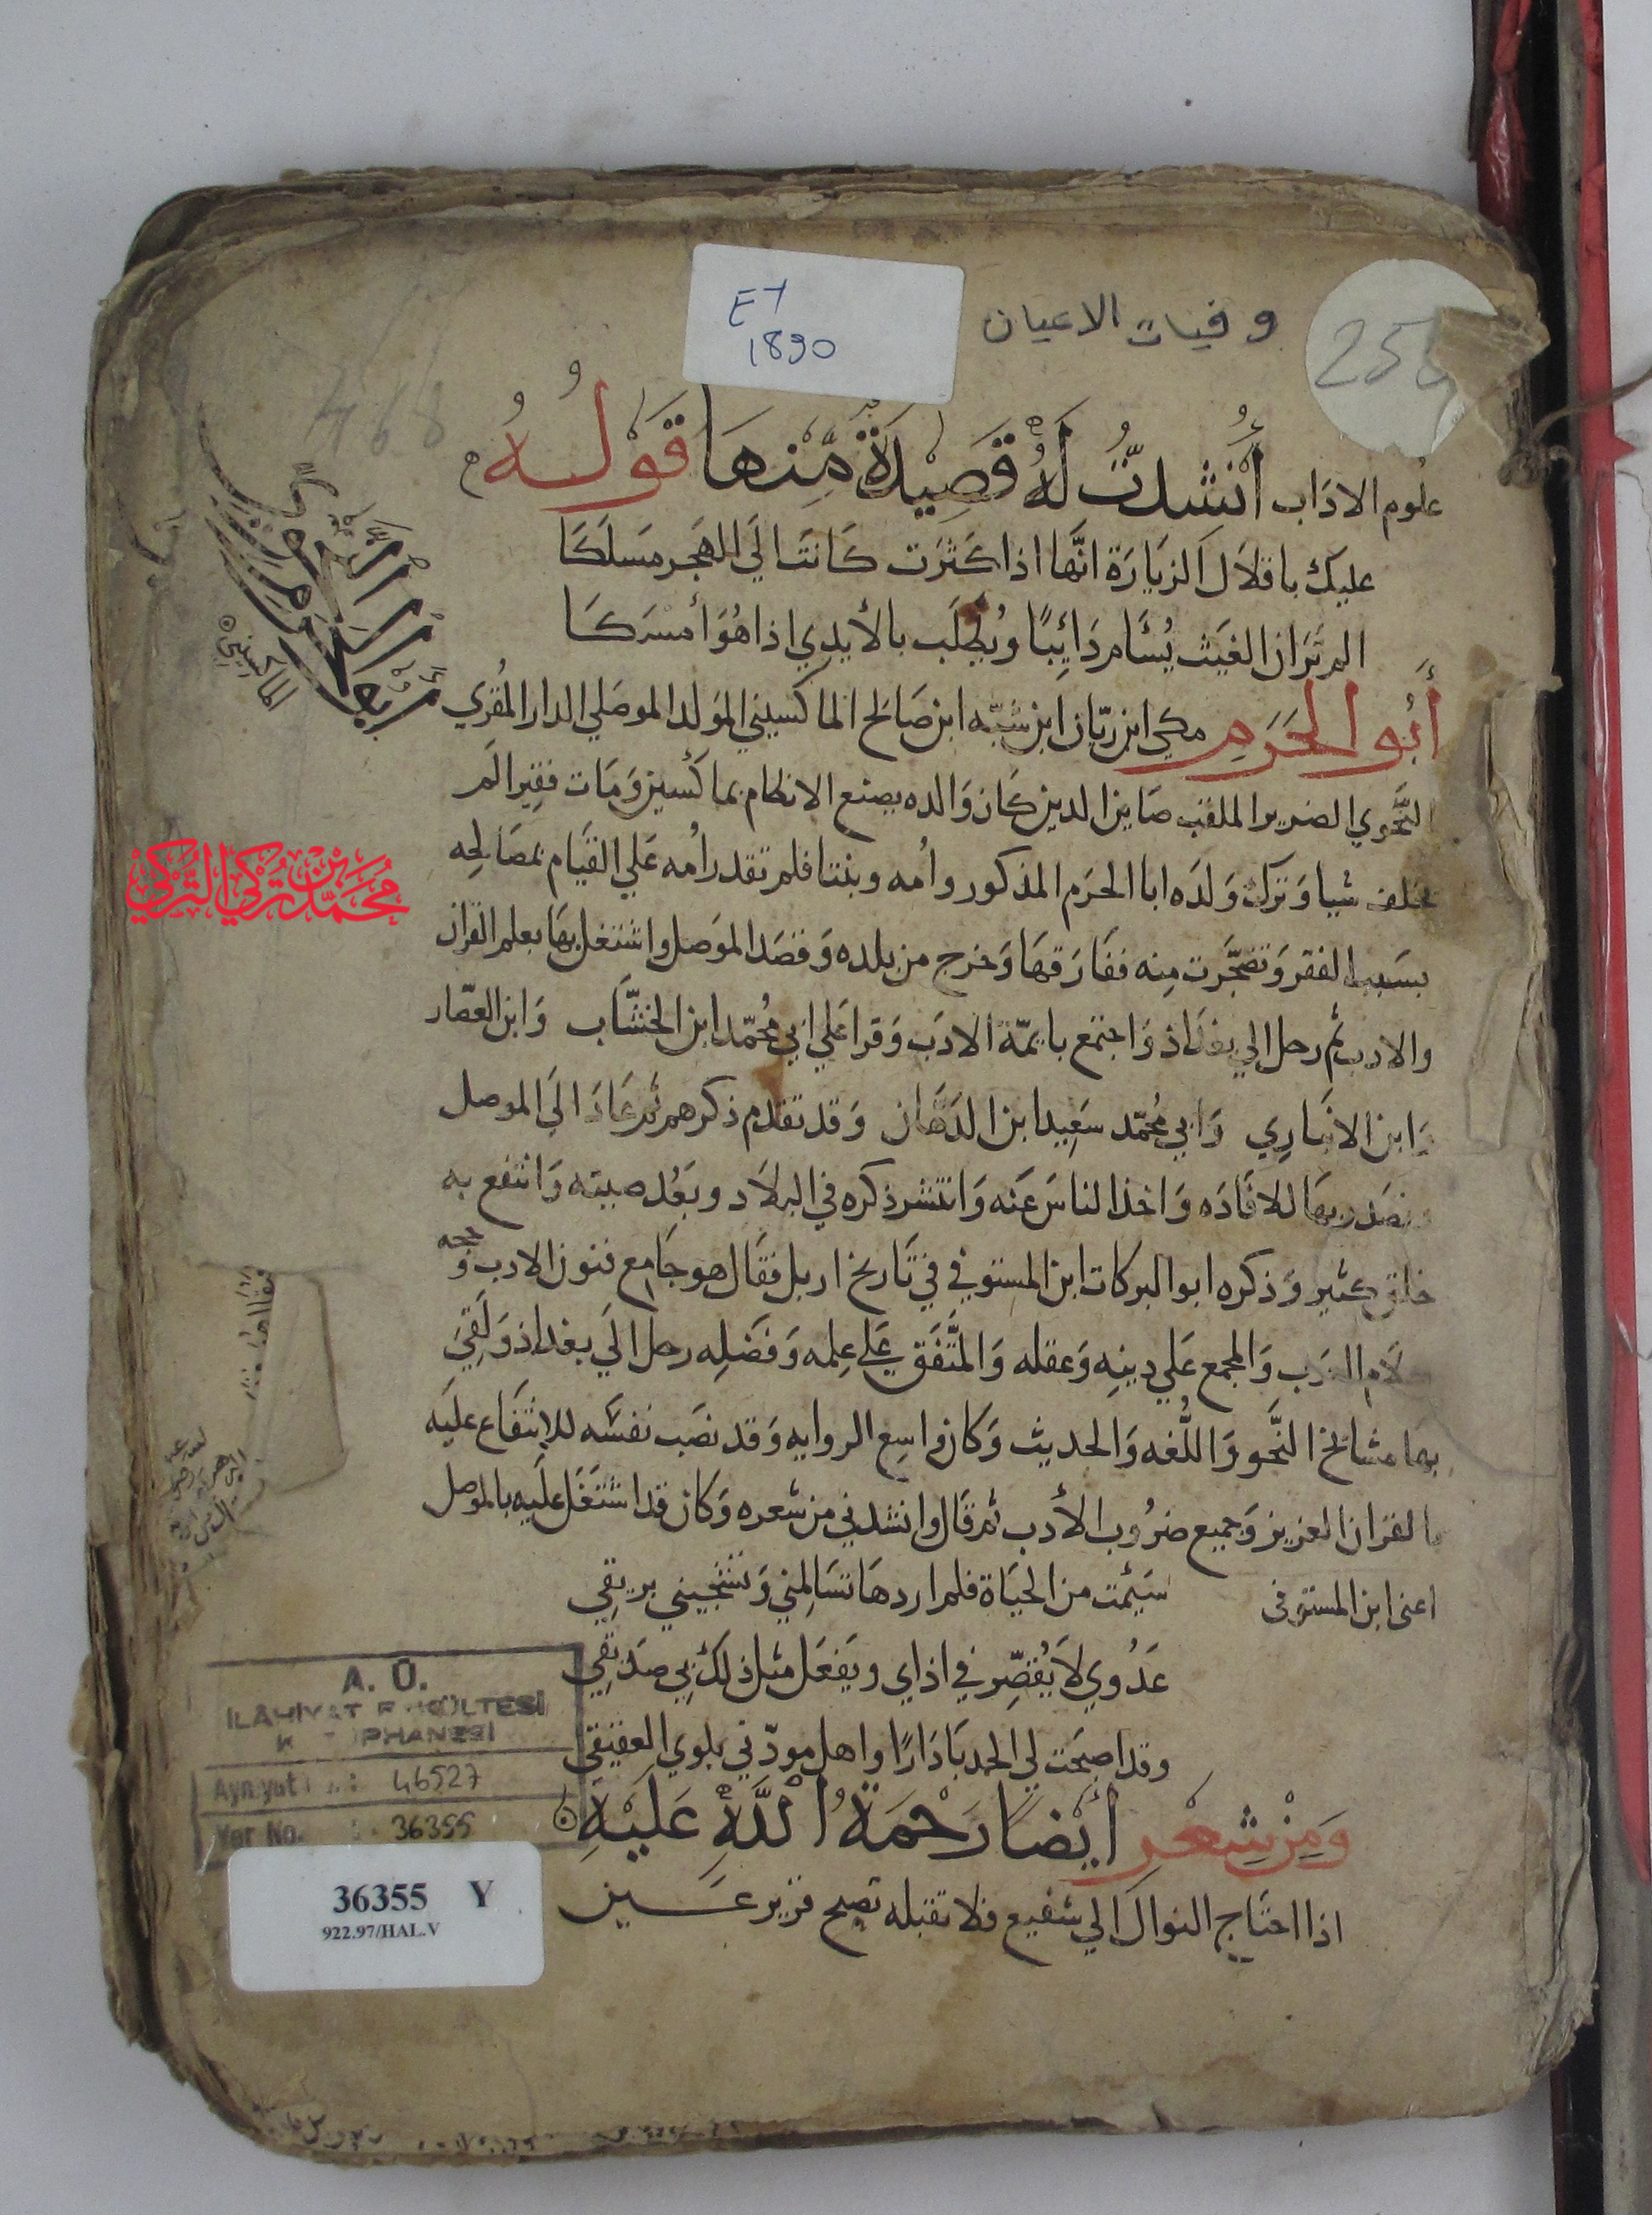 وفيات الاعيان
EY
1890
علوم الاداب أُنْشِدتُ لَهُ قَصِيدَةً مِّنهَا قَوْلُهُ
عليك باقلال الزيارة انها اذا كثرت كانت الي الهجر مسلكا
الم تر ان الغيث يُسْأم دَائبًا ويُطلَب بالأيدي اذا هُوَ أمسَكَا
أبُو الحَرَمِ مكي ابن ريّان ابن شبّه ابن صَالح الماكسيني المولد الموصلي الدار المُقري
النَّحوي الضرير الملقب صَاين الدين كان وَالده يصنع الانطاع بماكسين وَمَات فقيرا لم
يخلف شيا وَترك وَلدَه ابا الحرَم المذكور وامه وبنتا فلم تقدر امه عَلي القيَام بمصَالحه
بسَبب الفقر وَتضجَّرت مِنه ففَارَقهَا وَخرج من بلده وَقصَد الموَصل واشتغل بهَا بعلم القران
والادب ثم رحل الي بغداذ وَاجتمع بايمّة الادَب وَقرا عَلي ابي مُحمّد ابن الخشَّاب وَابن العصّار
وَابن الانبَارِي وَابي مُحمّد سَعِيد ابن الدَهَّان وَقد تقدم ذكرهم ثم عَادَ الَي الموصل
وتصَدر بهَا للافَادَه وَاخذ الناسَ عَنه وَانتشر ذكره في البلاَد وبَعُد صيته وَانتفع به
خلق كثير وَذكره ابو البركات ابن المستوفي في تَاريخ اربل فقَال هو جَامِع فنون الادب وَحجه
كلام العرَب وَالمجمع عَلي دينِه وَعقله وَالمتَّفَق عَلي عِلمه وَفضَلِه رحل الَي بغداذ وَلَقِيَ
بها مشائخ النَّحو وَاللُّغه وَالحديث وَكان واسِع الروايه وَقد نصَب نفسَه للانتفَاع عليَه
بالقران العزيز وَجميع ضرُوب الأدب ثم قَال وانشدني من شعره وَكان قد اشتغَل عليه بالموصل
اعني ابن المستوفي سَيَمِت من الحيَاة فلم اردهَا تسَالمِني وَتشجيني بريقِي
عَدُوي لاَ يُقصِّر في اذاي ويَفعَل مثل ذلك بِي صدَيقِي
وقد اصبحَت لي الحدبَا دَارًا واهل مودّتي بلوي العقيقِ
وَمِنْ شِعْرِ أيْضًا رَحْمَةُ اللَّهِ عَلَيْهِ
اذا احتَاج النوال الي شفيع فلا تقبله تصبح قرير عَين
الماكسيني
محمد بن تركي التركي
A. Ü.
İLAHİYAT FAKÜLTESİ
KÜTÜPHANESİ
Ayniyat : 46527
Yer No. : 36355
36355 Y
922.97/HAL.V